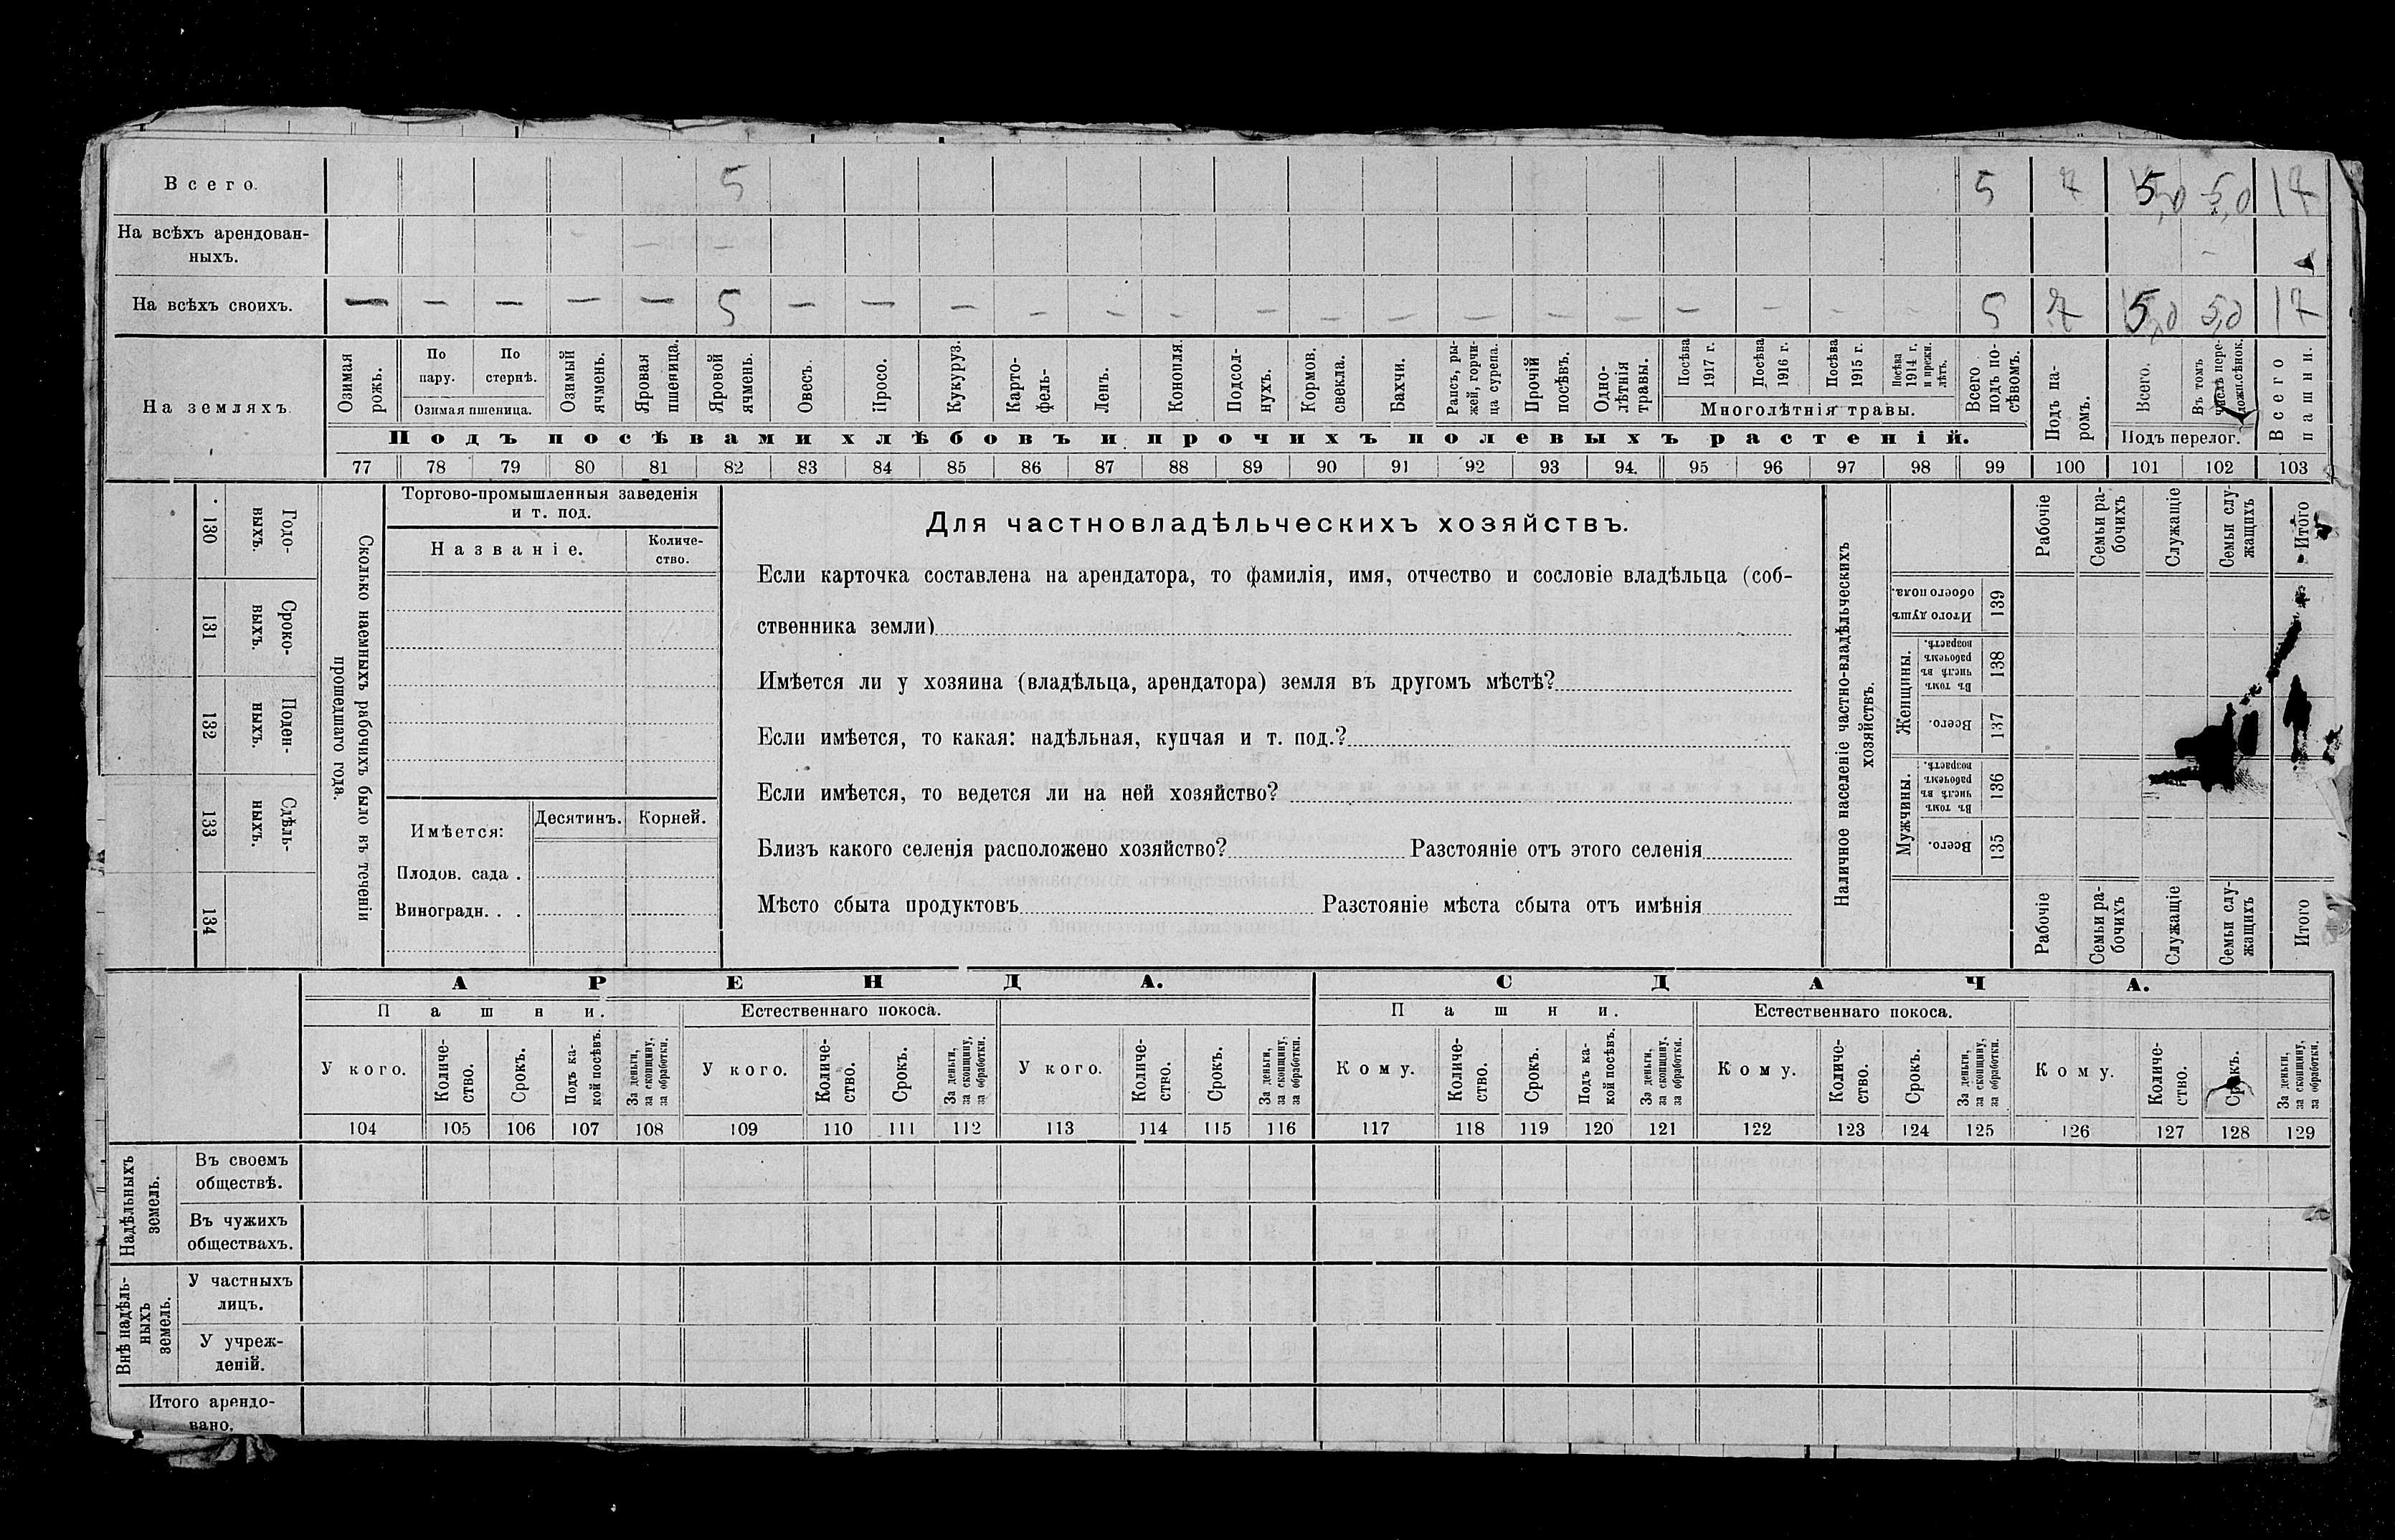 Всего. 5 5 7 5,0 5,0 17
На всѣхъ арендован-
ныхъ.
На всѣхъ своихъ. — — — — — 5 — — — — — — — — — — — — — — 5 7 5,0 5,0 17
На земляхъ.
Озимая рожь.
По пару.
По стернѣ.
Озимая пшеница.
Озимый ячмень.
Яровая пшеница.
Яровой ячмень.
Овесъ.
Просо.
Кукуруз.
Карто-
фель-
Ленъ.
Конопля.
Подсол-
нухъ.
Кормов.
свекла.
Бахчи.
Рапсъ, ры-
жей, горчи-
ца сурепа.
Прочій
посѣвъ.
Одно-
лѣтнія
травы.
Посѣва
1917 г.
Посѣва
1916 г.
Посѣва
1915 г.
Посѣва
1914 г.
и прежн.
лѣтъ.
Многолѣтнія травы.
Всего
подъ по-
сѣвомъ.
Подъ па-
ромъ.
Всего.
Въ томъ
числѣ пере-
ложн. сѣнок.
Подъ перелог.
Всего
пашни.
Подъ посѣвами хлѣбовъ и прочихъ полевыхъ растеній.
77 78 79 80 81 82 83 84 85 86 87 88 89 90 91 92 93 94. 95 96 97 98 99 100 101 102 103
130 Годо-
выхъ.
131 Сроко-
выхъ.
132 Поден-
ныхъ.
133 Сдѣль-
ныхъ.
134
Сколько наемныхъ рабочихъ было въ теченіи
прошедшаго года.
Торгово-промышленныя заведенія
и т. под.
Названіе.
Количе-
ство.
Имѣется:
Десятинъ. Корней.
Плодов. сада .
Виноградн. . .
Для частновладѣльческихъ хозяйствъ.
Если карточка составлена на арендатора, то фамилія, имя, отчество и сословіе владѣльца (соб-
ственника земли)
Имѣется ли у хозяина (владѣльца, арендатора) земля въ другомъ мѣстѣ?
Если имѣется, то какая: надѣльная, купчая и т. под.?
Если имѣется, то ведется ли на ней хозяйство?
Близъ какого селенія расположено хозяйство? Разстояніе отъ этого селенія
Мѣсто сбыта продуктовъ Разстояніе мѣста сбыта отъ имѣнія
Наличное населеніе частно-владѣльческихъ
хозяйствъ.
Рабочіе
Семьи ра-
бочихъ
Служащіе
Семьи слу-
жащихъ
Итого
Итого душъ
обоего пола.
139
Женщины.
Въ томъ
числѣ въ
рабочемъ
возрастѣ.
138
Всего.
137
Мужчины.
Въ томъ
числѣ въ
рабочемъ
возрастѣ.
136
Всего.
135
Рабочіе
Семьи ра-
бочихъ
Служащіе
Семьи слу-
жащихъ
Итого
АРЕНДА. СДАЧА.
Пашни. Естественнаго покоса. Пашни. Естественнаго покоса.
У кого.
Количе-
ство.
Срокъ.
Подъ ка-
кой посѣвъ.
За деньги,
за скопщину,
за обработки.
У кого.
Количе-
ство.
Срокъ.
За деньги,
за скопщину,
за обработки.
У кого.
Количе-
ство.
Срокъ.
За деньги,
за скопщину,
за обработки.
Кому.
Количе-
ство.
Срокъ.
Подъ ка-
кой посѣвъ.
За деньги,
за скопщину,
за обработки.
Кому.
Количе-
ство.
Срокъ.
За деньги,
за скопщину,
за обработки.
Кому.
Количе-
ство.
Срокъ.
За деньги,
за скопщину,
за обработки.
104 105 106 107 108 109 110 111 112 113 114 115 116 117 118 119 120 121 122 123 124 125 126 127 128 129
Надѣльныхъ
земель.
Въ своемъ
обществѣ.
Въ чужихъ
обществахъ.
Внѣ надѣль-
ныхъ
земель.
У частныхъ
лицъ.
У учреж-
деній.
Итого арендо-
вано.